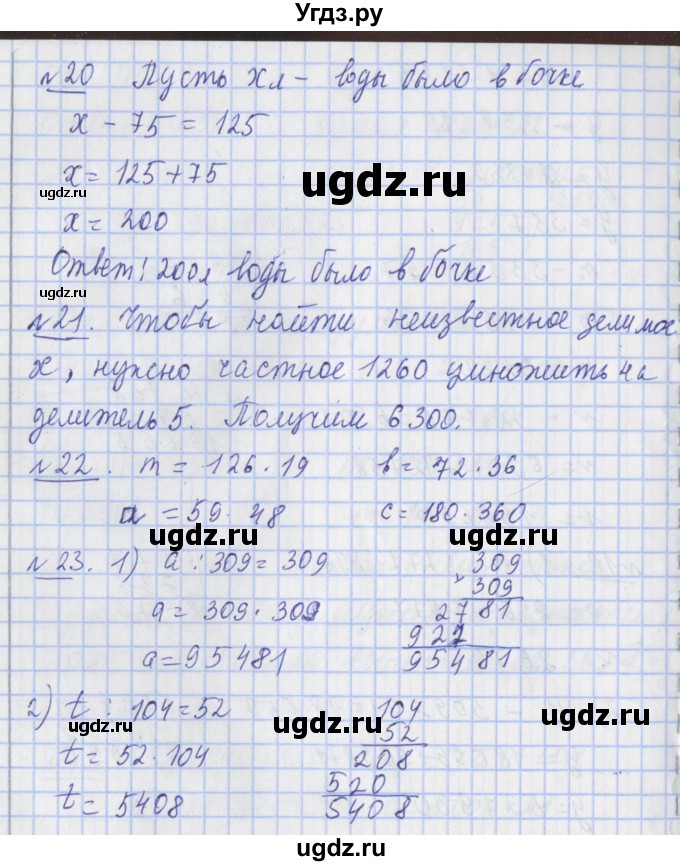 Угдз.ру
№20 Пусть x л - воды было в бочке
x - 75 = 125
ugdz.ru
x = 125 + 75
ugdz.ru
ugdz.ru
x = 200
Ответ: 200 л воды было в бочке
ugdz.ru
ugdz.ru
№21. Чтобы найти неизвестное делимое
x, нужно частное 1260 умножить на
делитель 5. Получим 6300.
№22. m = 126 · 19 b = 72 · 36
a = 59 · 48 c = 180 · 360
ugdz.ru
ugdz.ru
№23. 1) a : 309 = 309 309
× 309
a = 309 · 309 2781
927
a = 95481 95481
ugdz.ru
ugdz.ru
2) t : 104 = 52 104
52
t = 52 · 104 208
520
t = 5408 5408
ugdz.ru
ugdz.ru